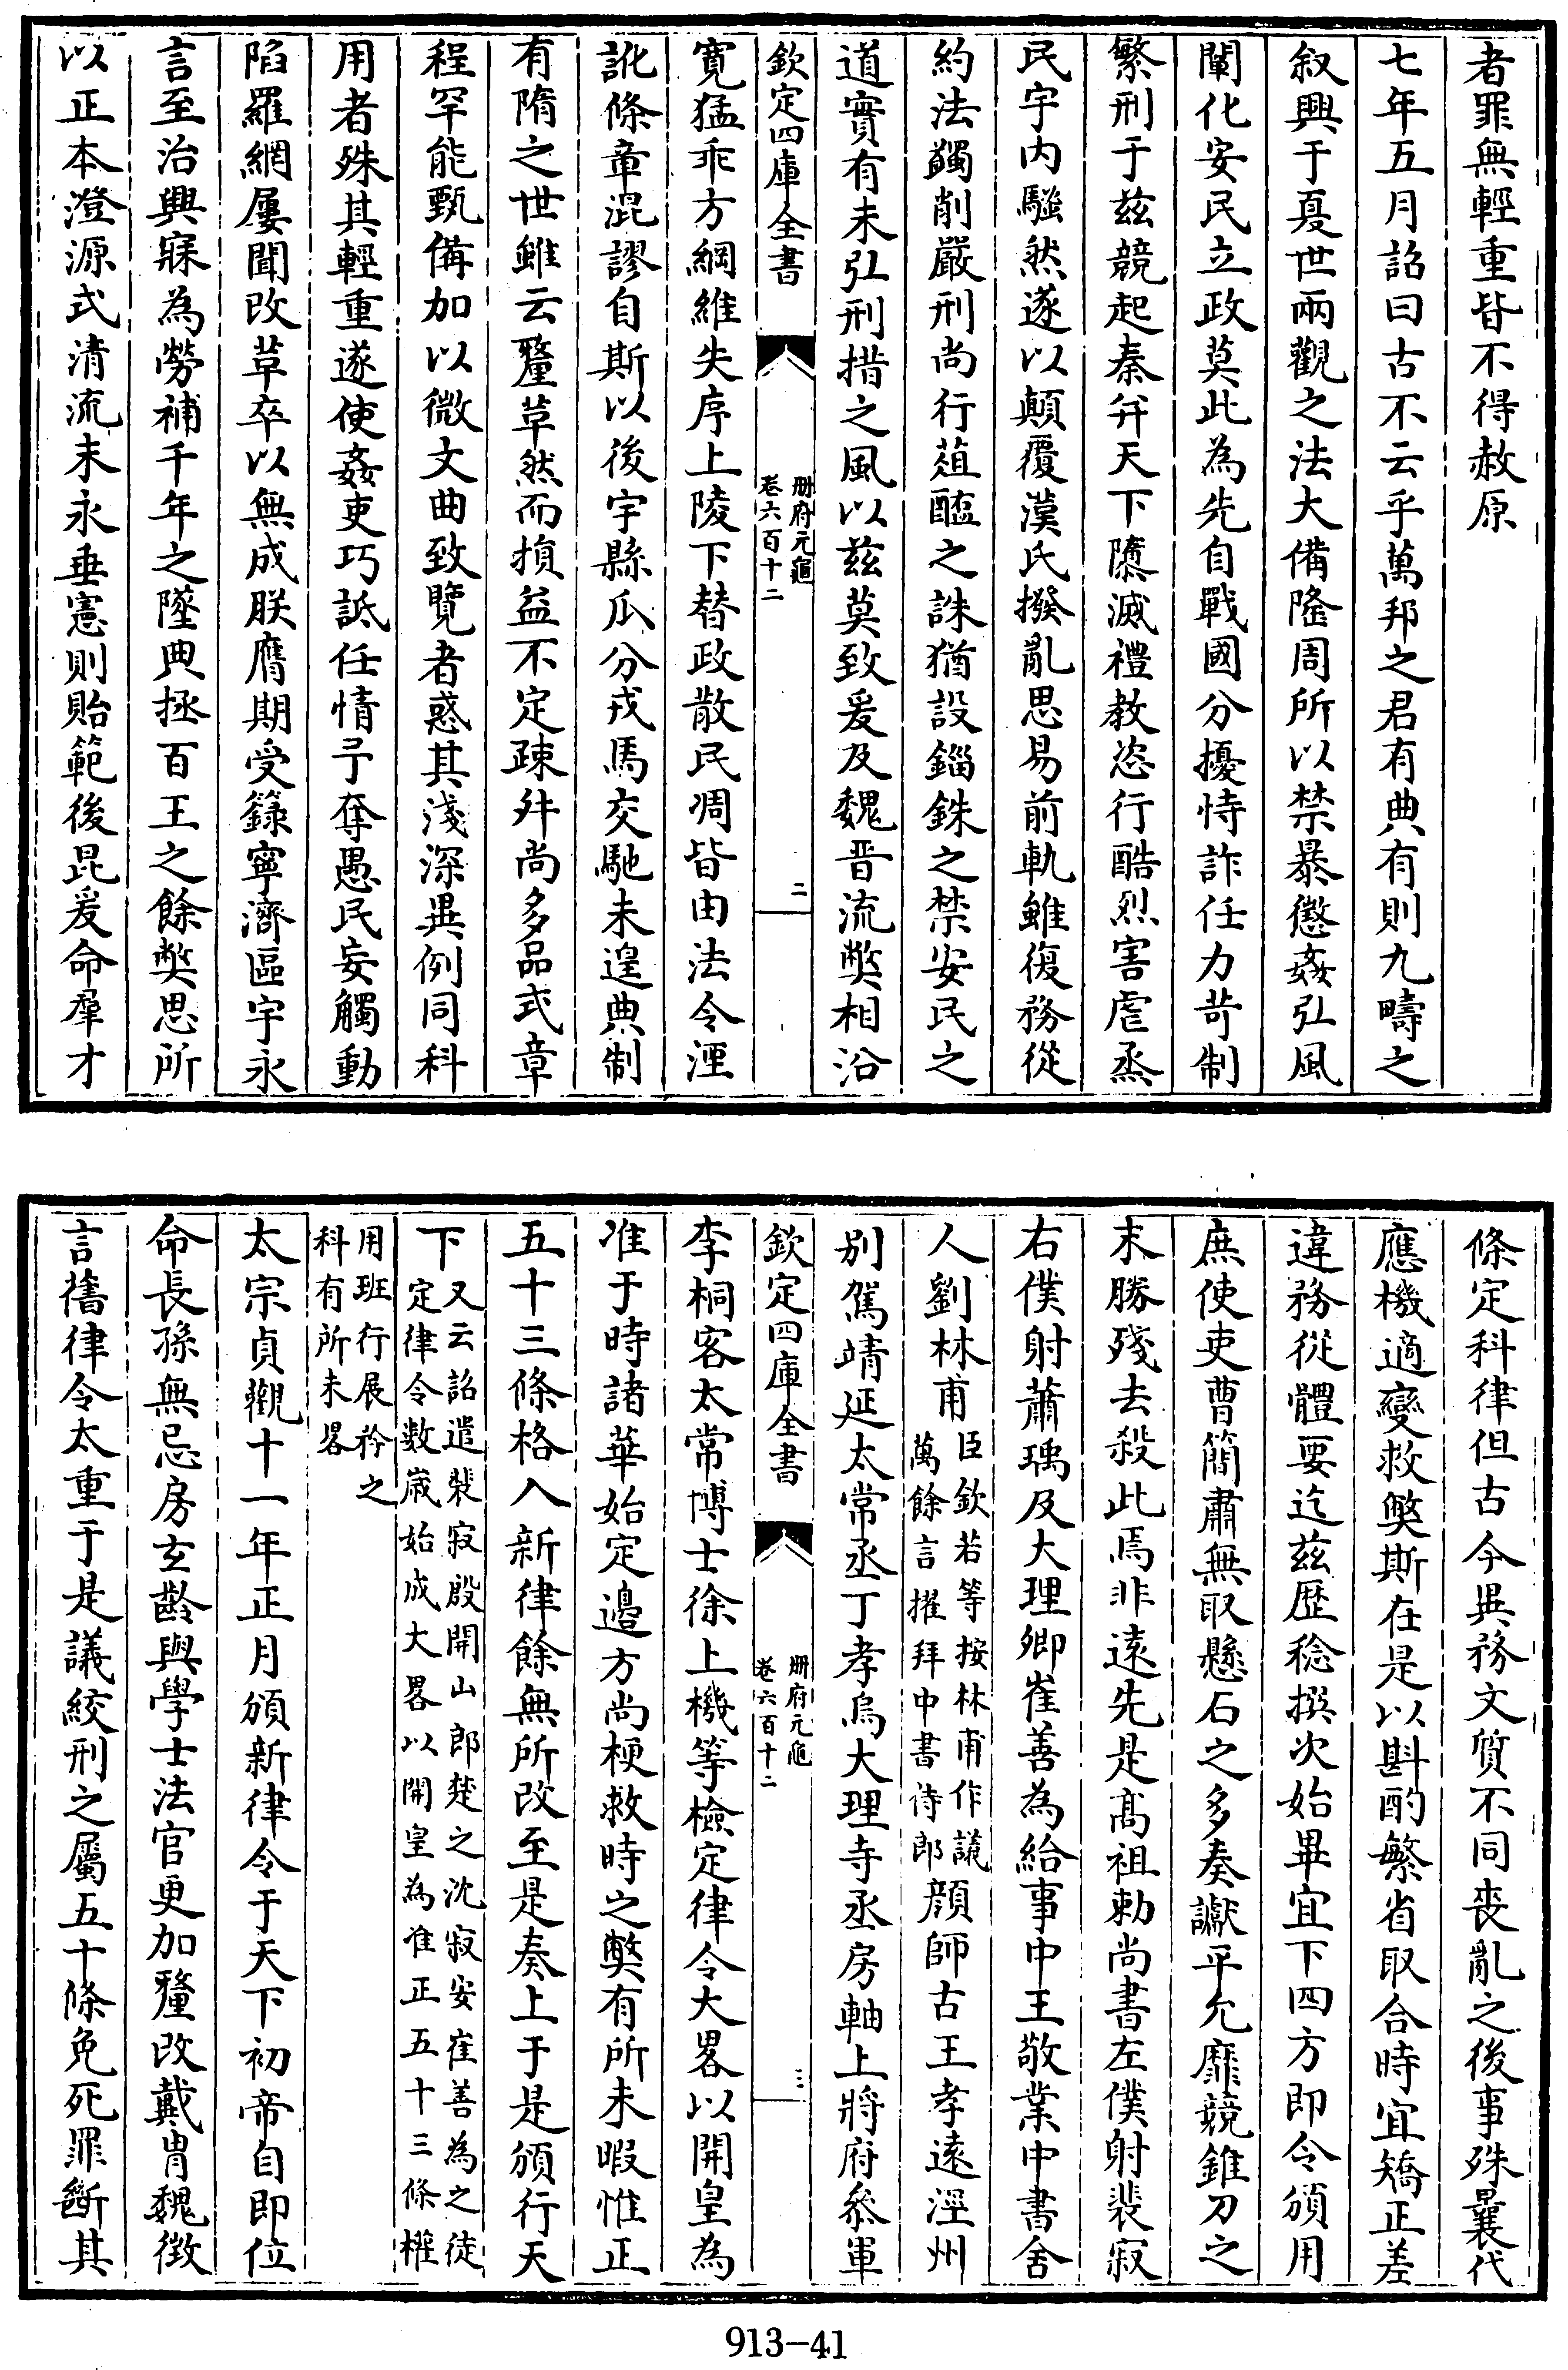 者罪無輕重皆不得赦原
七年五月詔曰古不云乎萬邦之君有典有則九疇之
叙興于夏世兩觀之法大備隆周所以禁暴懲姦弘風
闡化安民立政莫此為先自戰國分擾恃詐任力苛制
繁刑于兹競起秦并天下隳滅禮教恣行酷烈害虐烝
民宇内騷然遂以顛覆漢氏撥亂思易前軌雖復務從
約法蠲削嚴刑尚行葅醢之誅猶設錙銖之禁安民之
道實有未弘刑措之風以兹莫致爰及魏晋流弊相沿
欽定四庫全書
册府元龜
卷六百十二
二
寛猛乖方綱維失序上陵下替政散民凋皆由法令湮
訛條章混謬自斯以後宇縣瓜分戎馬交馳未遑典制
有隋之世雖云釐草然而損益不定疎舛尚多品式章
程罕能甄備加以微文曲致覽者惑其淺深異例同科
用者殊其輕重遂使姦吏巧詆任情予奪愚民妄觸動
陷羅網屢聞改草卒以無成朕膺期受籙寧濟區宇永
言至治興寐為勞補千年之墜典拯百王之餘弊思所
以正本澄源式清流末永垂憲則貽範後昆爰命羣才
條定科律但古今異務文質不同喪亂之後事殊曩代
應機適變救弊斯在是以斟酌繁省取合時宜矯正差
違務從體要迄兹歴稔撰次始畢宜下四方即令頒用
庶使吏曹簡肅無取懸石之多奏讞平允靡競錐刀之
末勝殘去殺此焉非遠先是髙祖勅尚書左僕射裴寂
右僕射蕭瑀及大理卿崔善為給事中王敬業中書舍
人劉林甫臣欽若等按林甫作議
萬餘言擢拜中書侍郎顔師古王孝遠涇州
别駕靖延太常丞丁孝烏大理寺丞房軸上將府叅軍
欽定四庫全書
册府元龜
卷六百十二
三
李桐客太常博士徐上機等檢定律令大畧以開皇為
准于時諸華始定邉方尚梗救時之弊有所未暇惟正
五十三條格入新律餘無所改至是奏上于是頒行天
下又云詔遣裴寂殷開山郎楚之沈寂安崔善為之徒
定律令数歳始成大畧以開皇為准正五十三條權
用班行展矜之
科有所未畧
太宗貞觀十一年正月頒新律令于天下初帝自即位
命長孫無忌房玄齡與學士法官更加釐改戴胄魏徴
言舊律令太重于是議絞刑之屬五十條免死罪斷其
913-41